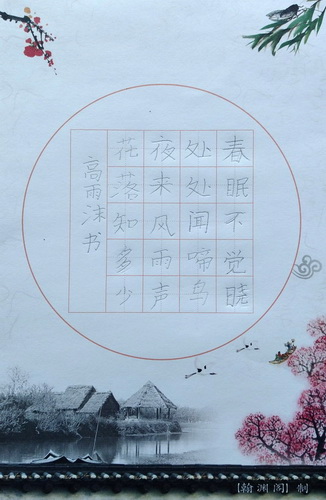 春眠不觉晓
处处闻啼鸟
夜来风雨声
花落知多少
高雨沫书
【翰渊阁】制